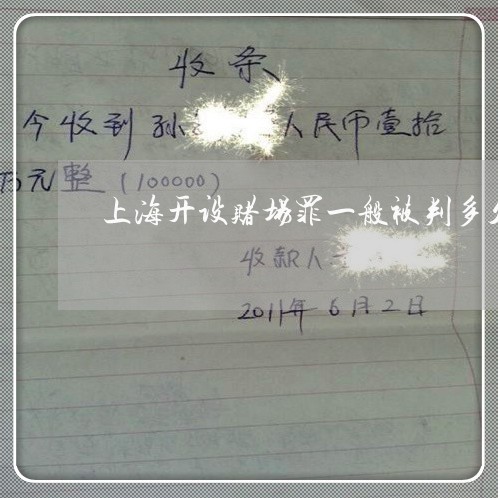 收条
今收到孙 人民币壹拾
万元整(100000)
上海开设赌场罪一般被判多久
收款人
2011年6月2日